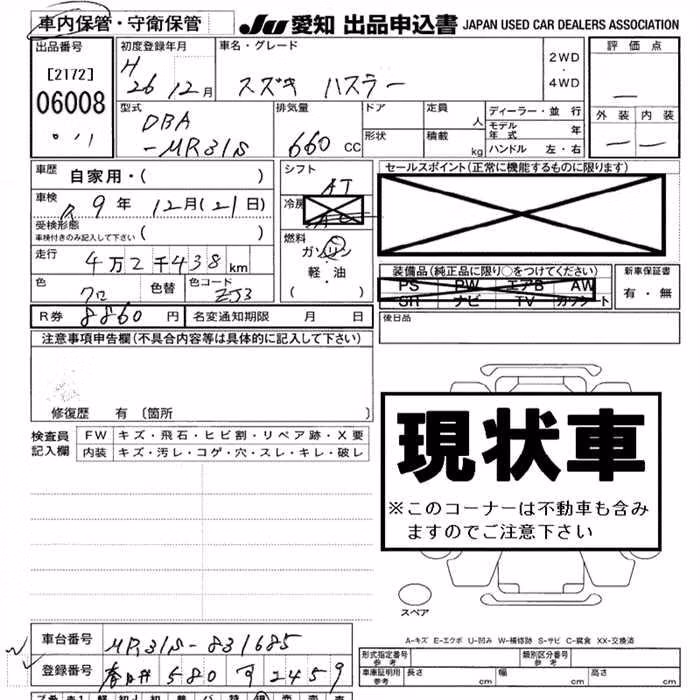 車内保管・守衛保管
JU 愛知 出品申込書 JAPAN USED CAR DEALERS ASSOCIATION
出品番号 初度登録年月 車名・グレード 2WD・4WD 評価点
[2172] H 26 12月 スズキ ハスラー
06008
型式 排気量 ドア 定員 人 ディーラー・並行
DBA モデル年式 年 外装 内装
-MR31S 660 CC 形状 積載 kg ハンドル 左・右
車歴 自家用・( ) シフト AT セールスポイント(正常に機能するものに限ります)
車検 R 9年 12月(21日) 冷房
受検形態 車検付きのみ記入して下さい ( ) 燃料
ガソリン
走行 4万2千438km 軽・油 装備品(純正品に限り○をつけてください) 新車保証書
色 色替 色コード ( ) PS PW エアB AW 有・無
クロ ZJ3 SR ナビ TV カワシート
R券 8860円 名変通知期限 月 日 後日品
注意事項申告欄(不具合内容等は具体的に記入して下さい)
修復歴 有〔箇所 〕
検査員記入欄 FW キズ・飛石・ヒビ割・リペア跡・X要
内装 キズ・汚レ・コゲ・穴・スレ・キレ・破レ
現状車
※このコーナーは不動車も含み
ますのでご注意下さい
スペア
A-キズ E-エクボ U-凹み W-補修跡 S-サビ C-腐食 XX-交換済
車台番号 MR31S-831685
形式指定番号 参考 類別区分番号 参考
登録番号 春日井 580 2459
車庫証明用 参考 長さ cm 幅 cm 高さ cm